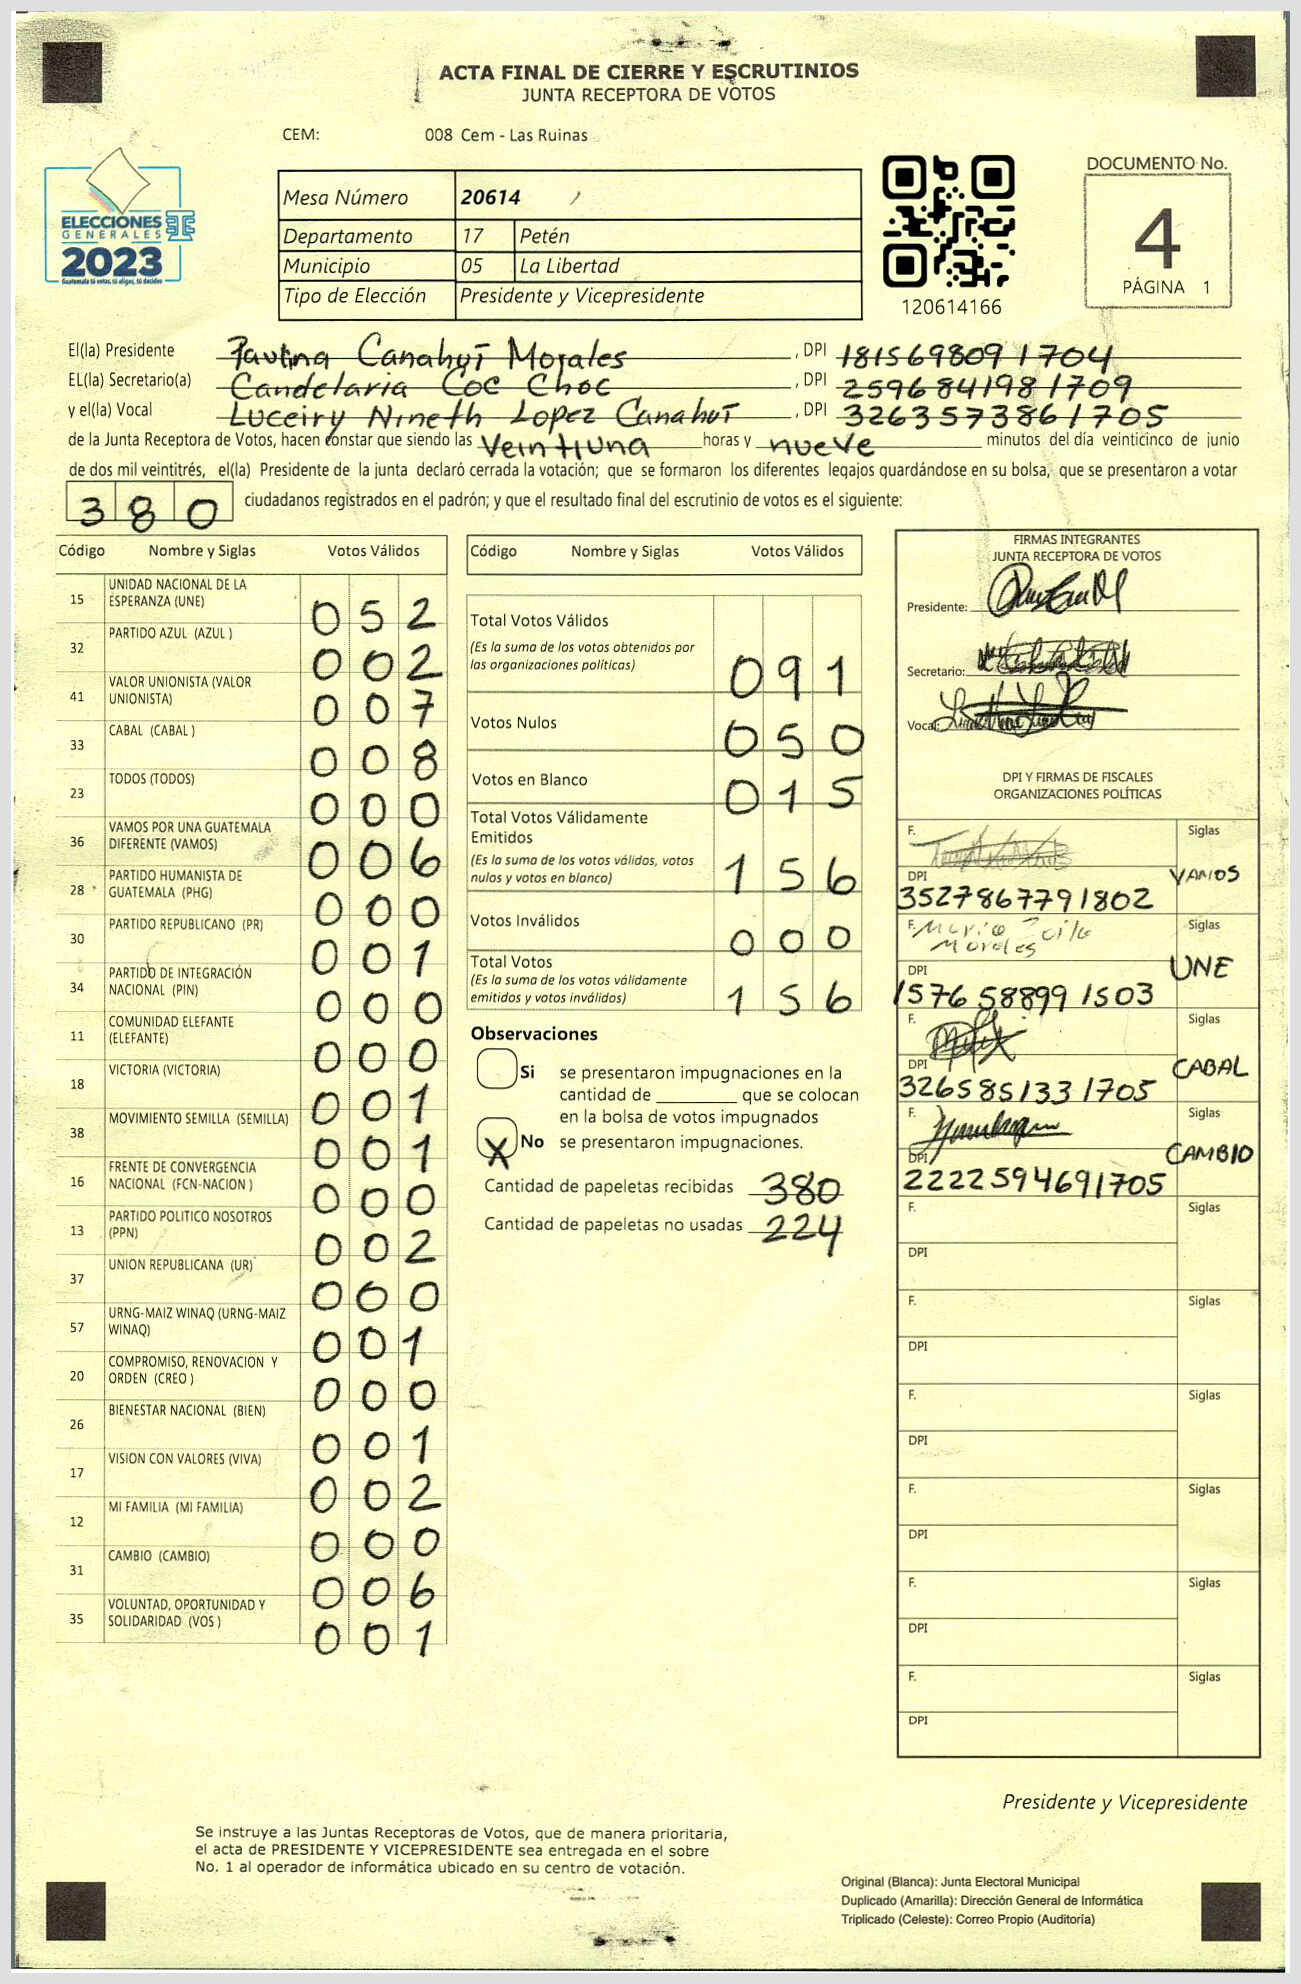 ACTA FINAL DE CIERRE Y ESCRUTINIOS
JUNTA RECEPTORA DE VOTOS
CEM: 008 Cem - Las Ruinas
ELECCIONES
GENERALES
2023
Guatemala tú votas, tú eliges, tú decides
Mesa Número 20614
Departamento 17 Petén
Municipio 05 La Libertad
Tipo de Elección Presidente y Vicepresidente
120614166
DOCUMENTO No.
4
PÁGINA 1
El(la) Presidente Paulina Canahuí Morales, DPI 181569809 1704
EL(la) Secretario(a) Candelaria Coc Choc, DPI 259684198 1709
y el(la) Vocal Luceiry Nineth Lopez Canahuí, DPI 326357386 1705
de la Junta Receptora de Votos, hacen constar que siendo las Veintiuna horas y nueve minutos del día veinticinco de junio
de dos mil veintitrés, el(la) Presidente de la junta declaró cerrada la votación; que se formaron los diferentes legajos guardándose en su bolsa, que se presentaron a votar
380 ciudadanos registrados en el padrón; y que el resultado final del escrutinio de votos es el siguiente:
Código Nombre y Siglas Votos Válidos
15 UNIDAD NACIONAL DE LA ESPERANZA (UNE) 052
32 PARTIDO AZUL (AZUL ) 002
41 VALOR UNIONISTA (VALOR UNIONISTA) 007
33 CABAL (CABAL ) 008
23 TODOS (TODOS) 000
36 VAMOS POR UNA GUATEMALA DIFERENTE (VAMOS) 006
28 PARTIDO HUMANISTA DE GUATEMALA (PHG) 000
30 PARTIDO REPUBLICANO (PR) 001
34 PARTIDO DE INTEGRACIÓN NACIONAL (PIN) 000
11 COMUNIDAD ELEFANTE (ELEFANTE) 000
18 VICTORIA (VICTORIA) 001
38 MOVIMIENTO SEMILLA (SEMILLA) 001
16 FRENTE DE CONVERGENCIA NACIONAL (FCN-NACION ) 000
13 PARTIDO POLITICO NOSOTROS (PPN) 002
37 UNION REPUBLICANA (UR) 000
57 URNG-MAIZ WINAQ (URNG-MAIZ WINAQ) 001
20 COMPROMISO, RENOVACION Y ORDEN (CREO ) 000
26 BIENESTAR NACIONAL (BIEN) 001
17 VISION CON VALORES (VIVA) 002
12 MI FAMILIA (MI FAMILIA) 000
31 CAMBIO (CAMBIO) 006
35 VOLUNTAD, OPORTUNIDAD Y SOLIDARIDAD (VOS ) 001
Código Nombre y Siglas Votos Válidos
Total Votos Válidos
(Es la suma de los votos obtenidos por
las organizaciones políticas) 091
Votos Nulos 050
Votos en Blanco 015
Total Votos Válidamente
Emitidos
(Es la suma de los votos válidos, votos
nulos y votos en blanco) 156
Votos Inválidos 000
Total Votos
(Es la suma de los votos válidamente
emitidos y votos inválidos) 156
Observaciones
Si se presentaron impugnaciones en la
cantidad de ________ que se colocan
en la bolsa de votos impugnados
X No se presentaron impugnaciones.
Cantidad de papeletas recibidas 380
Cantidad de papeletas no usadas 224
FIRMAS INTEGRANTES
JUNTA RECEPTORA DE VOTOS
Presidente:
Secretario:
Vocal:
DPI Y FIRMAS DE FISCALES
ORGANIZACIONES POLÍTICAS
F. Siglas
DPI VAMOS
3527867791802
F. Maria Zoila Siglas
Morales
DPI UNE
1576 58899 1503
F. Siglas
DPI CABAL
326585133 1705
F. Siglas
DPI CAMBIO
2222594691705
F. Siglas
DPI
F. Siglas
DPI
F. Siglas
DPI
F. Siglas
DPI
F. Siglas
DPI
F. Siglas
DPI
Presidente y Vicepresidente
Se instruye a las Juntas Receptoras de Votos, que de manera prioritaria,
el acta de PRESIDENTE Y VICEPRESIDENTE sea entregada en el sobre
No. 1 al operador de informática ubicado en su centro de votación.
Original (Blanca): Junta Electoral Municipal
Duplicado (Amarilla): Dirección General de Informática
Triplicado (Celeste): Correo Propio (Auditoría)